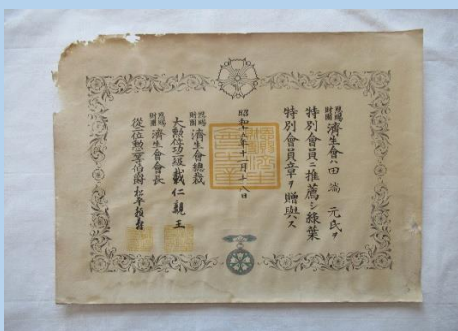 恩賜財團 濟生會ハ田 満 元氏ヲ
特別會員ニ推薦シ緑葉
特別會員章ヲ贈與ス
昭和十六年十一月十八日
恩賜財團 濟生會總裁
大勲位功一級載仁親王
恩賜財團 濟生會會長
從二位勲一等伯爵松平頼壽